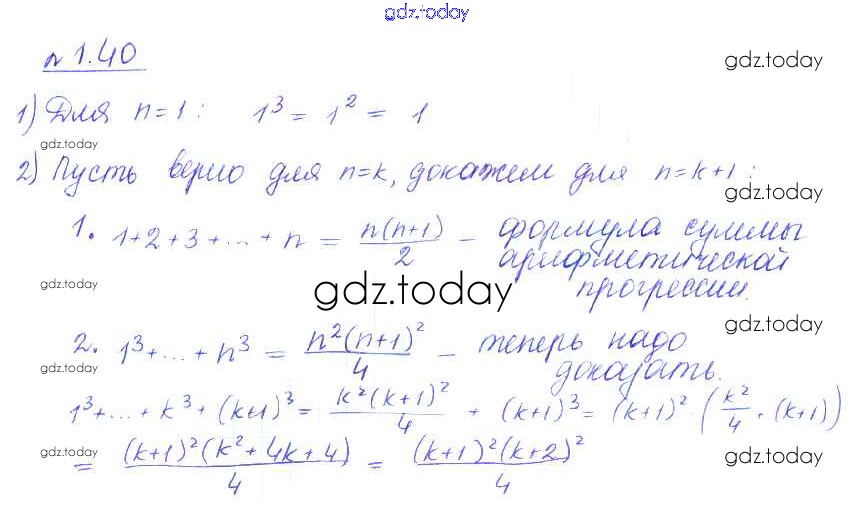 gdz.today
№ 1.40
gdz.today
1) Для n=1: 1³ = 1² = 1
gdz.today
2) Пусть верно для n=k, докажем для n=k+1:
gdz.today
1. 1+2+3+...+n = n(n+1)/2 - формула суммы
арифметической
gdz.today
прогрессии.
gdz.today
gdz.today
2. 1³+...+n³ = n²(n+1)²/4 - теперь надо
gdz.today
доказать.
1³+...+k³+(k+1)³ = k²(k+1)²/4 + (k+1)³ = (k+1)²·(k²/4+(k+1))
gdz.today
= (k+1)²(k²+4k+4)/4 = (k+1)²(k+2)²/4
gdz.today